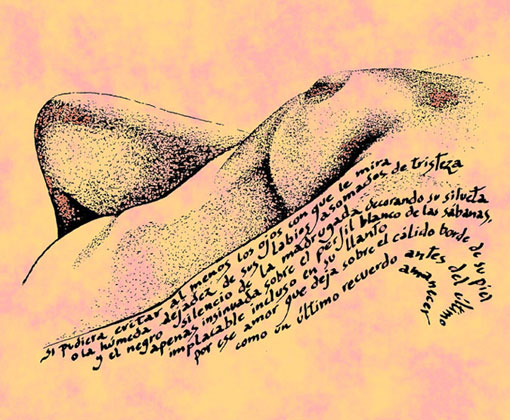 si pudiera evitar al menos los ojos con que le mira
o la húmeda dejadez de sus labios asomados de tristeza
y el negro silencio de la madrugada decorando su silueta
apenas insinuada sobre el perfil blanco de las sábanas,
implacable incluso en su llanto
por ese amor que deja sobre el cálido borde de su piel
como un último recuerdo antes del último
amanecer